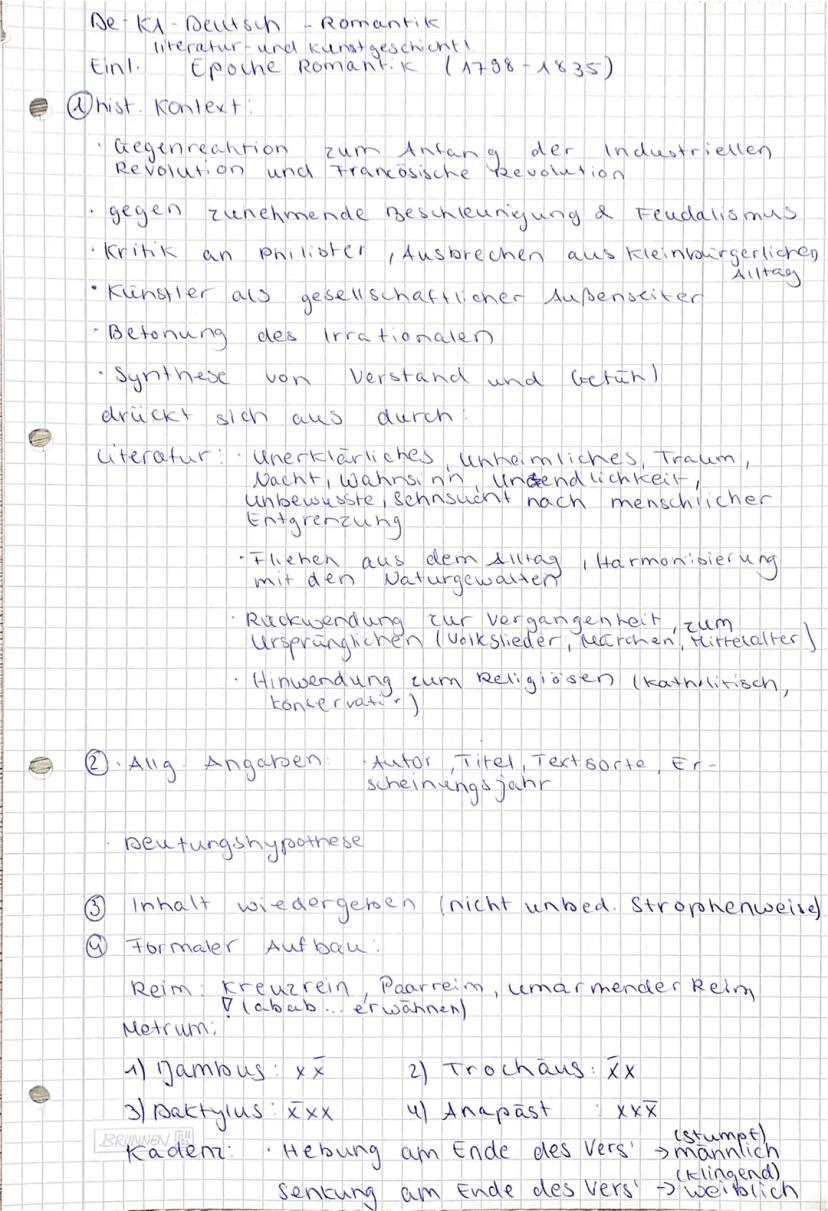 De-K1-Deutsch - Romantik
literatur-und kunstgeschichtl
Einl. Epoche Romantik (1798-1835)
① hist. Kontext:
· Gegenreaktion zum Anfang der Industriellen
Revolution und Francösische Revolution
· gegen zunehmende Beschleunigung & Feudalismus
· Kritik an Philister, Ausbrechen aus kleinbürgerlichen
Alltag
· Künstler als gesellschaftlicher Außenseiter
· Betonung des Irrationalen
· Synthese von Verstand und Gefühl
drückt sich aus durch:
Literatur: · Unerklärliches, Unheimliches, Traum,
Nacht, Wahnsinn, Unendlichkeit,
Unbewusste, Sehnsucht nach menschlicher
Entgrenzung
· Fliehen aus dem Alltag, Harmonisierung
mit den Naturgewalten
· Rückwendung zur Vergangenheit, zum
Ursprünglichen (Volkslieder, Märchen, Mittelalter)
· Hinwendung zum Religiösen (katholitisch,
konservativ)
② · Allg. Angaben: · Autor, Titel, Textsorte, Er-
scheinungsjahr
· Deutungshypothese
③ Inhalt wiedergeben (nicht unbed. Strophenweise)
④ Formaler Aufbau:
Reim: Kreuzrein, Paarreim, umarmender Reim
(abab... erwähnen)
Metrum:
1) Jambus: x x̄ 2) Trochäus: x̄ x
3) Daktylus: x̄xx 4) Anapäst : xxx̄
BRUNNEN
(stumpf)
Kadenz: · Hebung am Ende des Vers' → männlich
(klingend)
Senkung am Ende des Vers' → weiblich